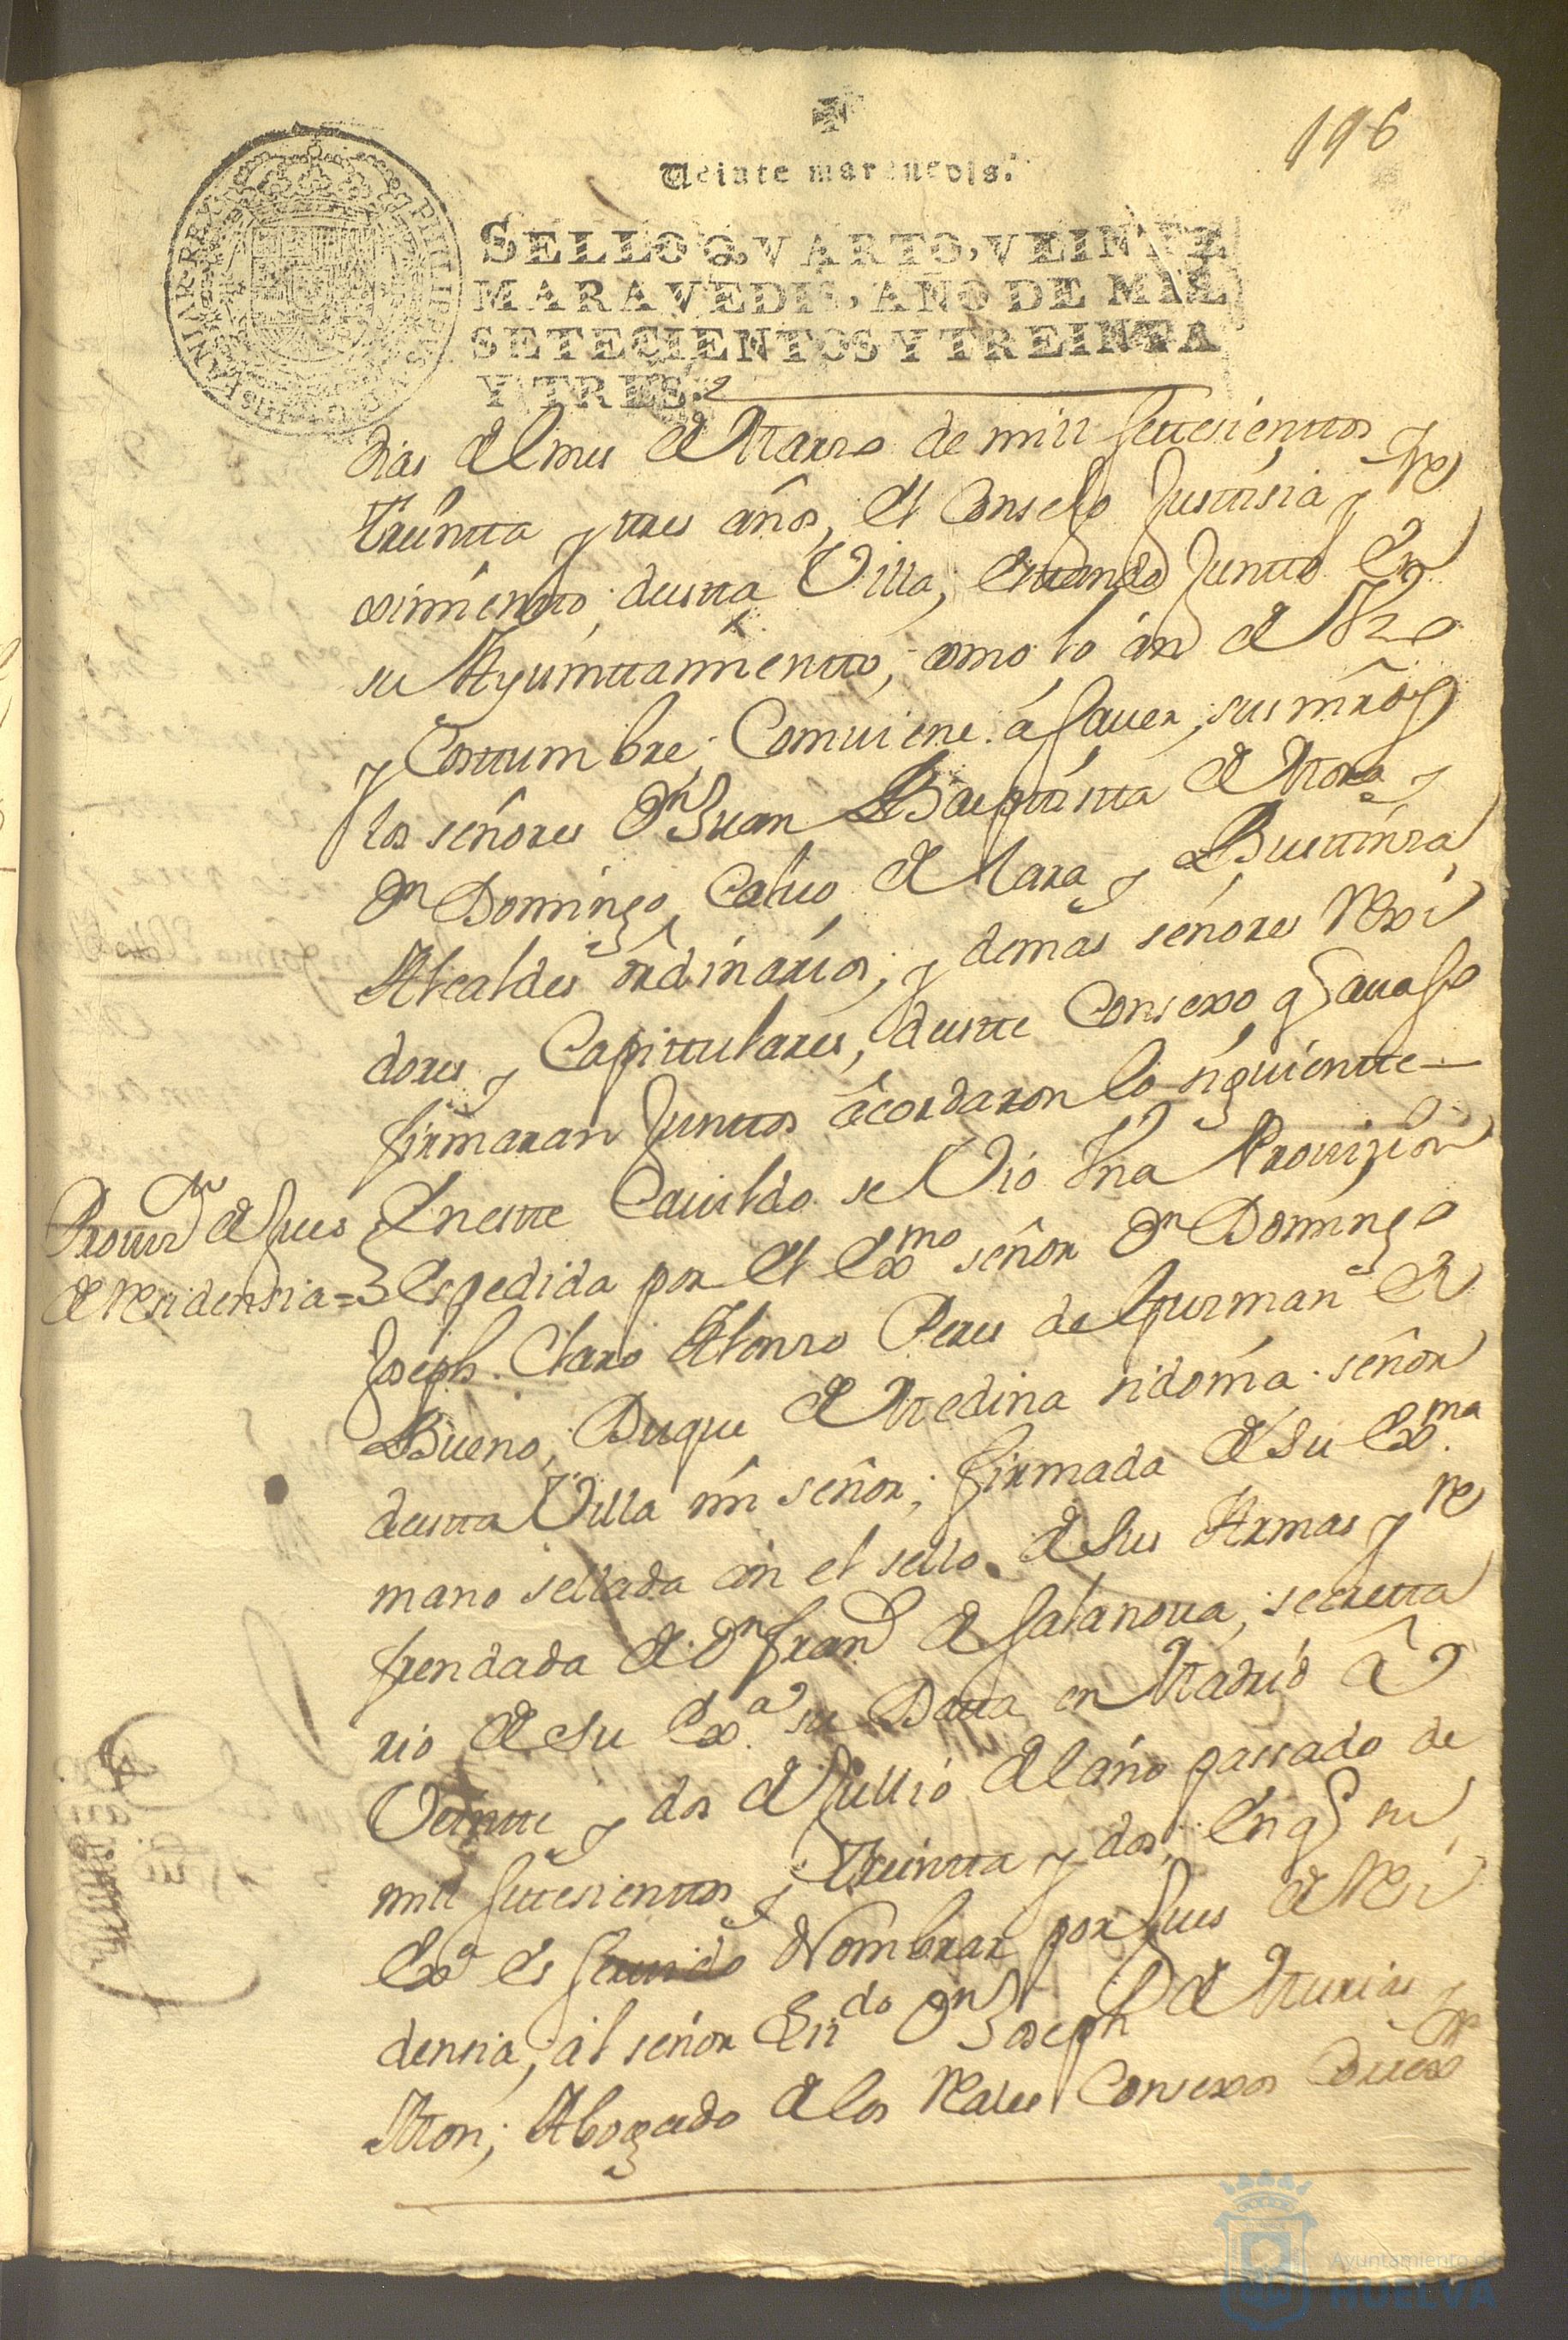 196
Veinte maravedis.
SELLO QVARTO, VEINTE
MARAVEDIS, AÑO DE MIL
SETECIENTOS Y TREINTA
Y TRES.
dias del mes de Marzo de mill settesienttos y
treintta y tres años, el Conselo Justtisia y Re
ximientto destta Villa, esttando Juntto en
su Ayunttamientto, como lo an de Uzo
y Costtumbre, Comuiene a sauer, sus mrds
los señores Dn Juan Bapttistta de Mora y
Dn Domingo Caluo de Lara y Busttinza
Alcaldes ordinarios, y demas señores Rexi
dores y Capittulares, destte Consexo q Sauajo
firmaran Junttos acordaron lo siguientte
Enestte Cauildo se Vio Una Prouizion
Espedida por el Exmo señor Dn Domingo
Joseph Claro Alonso Peres de Gusman el
Bueno, Duque de Medina sidonia señor
destta Villa mi señor, firmada de su Exma
mano sellada con el sello de sus Armas y Re
frendada de Dn Franco de Salanoua, secretta
rio de su Exa su Datta en Madrid a
Veintte y dos de Jullio del año passado de
mill settesienttos y Treintta y dos, en q su
Exa es seruido Nombrar por Jues de Resi
densia, al señor Lizdo Dn Joseph de Murias y
Mon, Abogado de los Reales Consexos
Prouin de Jues
de Residensia=
Ayuntamiento de
HUELVA